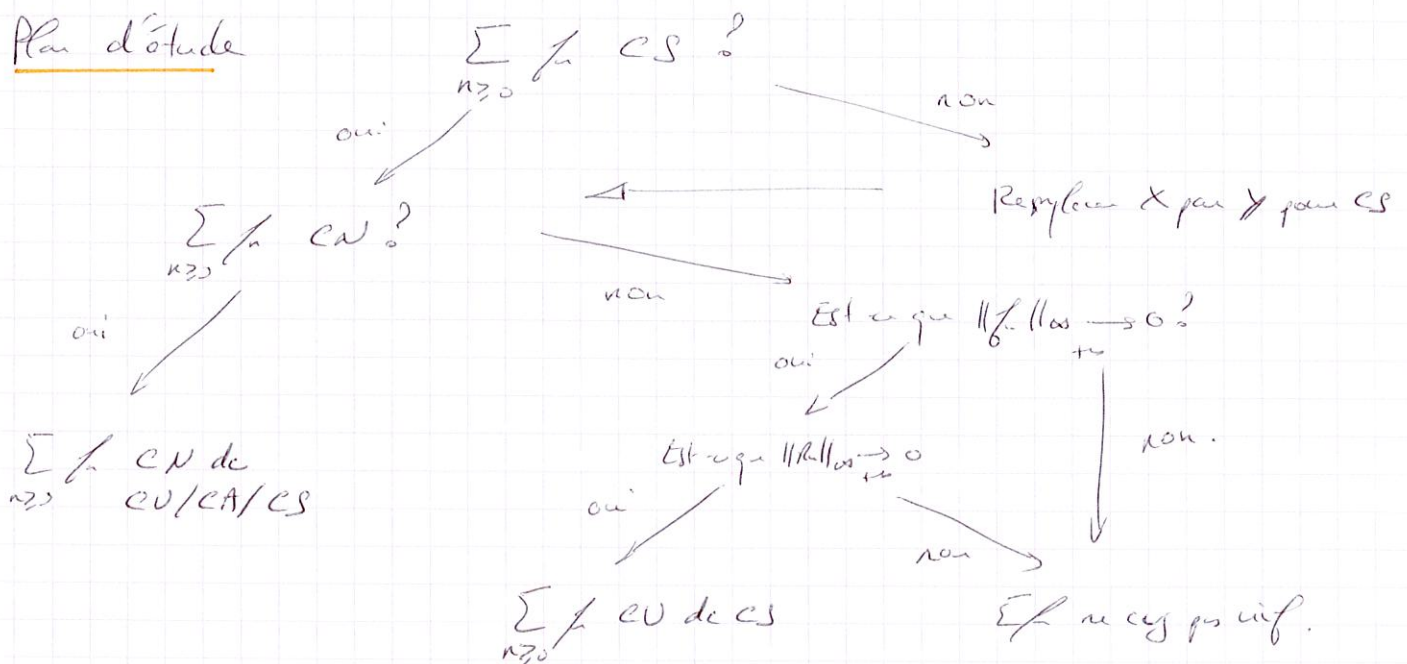 Plan d'étude
∑ fn CS ?
n≥0
oui
non
Remplacer X par Y pour CS
∑ fn CN ?
n≥0
oui
non
Est-ce que ||fn||∞ → 0 ?
+∞
oui
non.
∑ fn CN dc
n≥0 CU/CA/CS
Est-ce que ||Rn||∞ → 0
+∞
oui
non
∑ fn CU dc CS
n≥0
∑fn ne cvg pas unif.